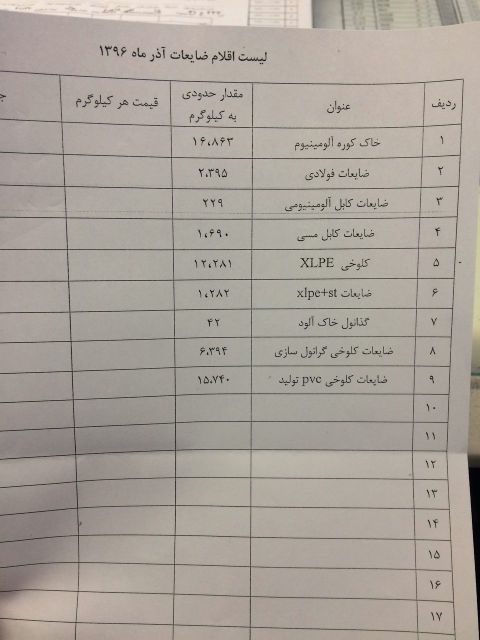 لیست اقلام ضایعات آذر ماه ۱۳۹۶
ردیف عنوان مقدار حدودی به کیلوگرم قیمت هر کیلوگرم
۱ خاک کوره آلومینیوم ۱۶،۸۶۳
۲ ضایعات فولادی ۲،۳۹۵
۳ ضایعات کابل آلومینیومی ۲۲۹
۴ ضایعات کابل مسی ۱،۶۹۰
۵ کلوخی XLPE ۱۲،۲۸۱
۶ ضایعات xlpe+st ۱،۲۸۲
۷ گذانول خاک آلود ۴۲
۸ ضایعات کلوخی گرانول سازی ۶،۳۹۴
۹ ضایعات کلوخی pvc تولید ۱۵،۷۴۰
۱۰
۱۱
۱۲
۱۳
۱۴
۱۵
۱۶
۱۷